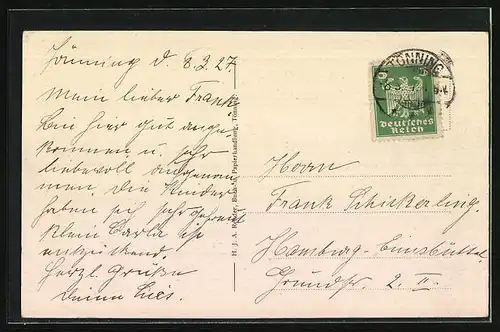 Tönning d. 8.3.27.
Mein lieber Frank
Bin hier gut ange
kommen u. sehr
liebevoll aufgenom
men. Die Kinder
haben sich sehr gefreut
Klein Carla ist
entzückend.
Herzl. Grüße
Deine
H. J. A. Reuter, Buch- u. Papierhandlung, Tönning.
TÖNNING
Deutsches
Reich
Herrn
Frank Schickerling.
Hamburg-Eimsbüttel
2. II.